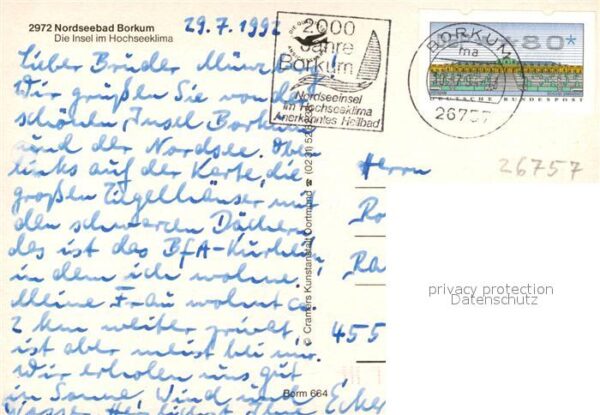 2972 Nordseebad Borkum
Die Insel im Hochseeklima
29.7.1992
Lieber Bruder
Wir grüßen Sie von der
schönen Insel Borkum
und der Nordsee. Oben
links auf der Karte, die
großen Ziegelhäuser mit
den schwarzen Dächern
das ist das BfA-Kurklin
in dem ich wohne.
Meine Frau wohnt ca
2 km weiter privat,
ist aber meist bei mir.
Wir erholen uns gut
in Sonne, Wind und
Wasser. Ihr
2000
Jahre
Borkum
Nordseeinsel
im Hochseeklima
Anerkanntes Heilbad
BORKUM
ma
26757
80*
DEUTSCHE BUNDESPOST
© Cramers Kunstanstalt Dortmund ☎ (0231)
Borm 664
Herrn
26757
455
privacy protection
Datenschutz